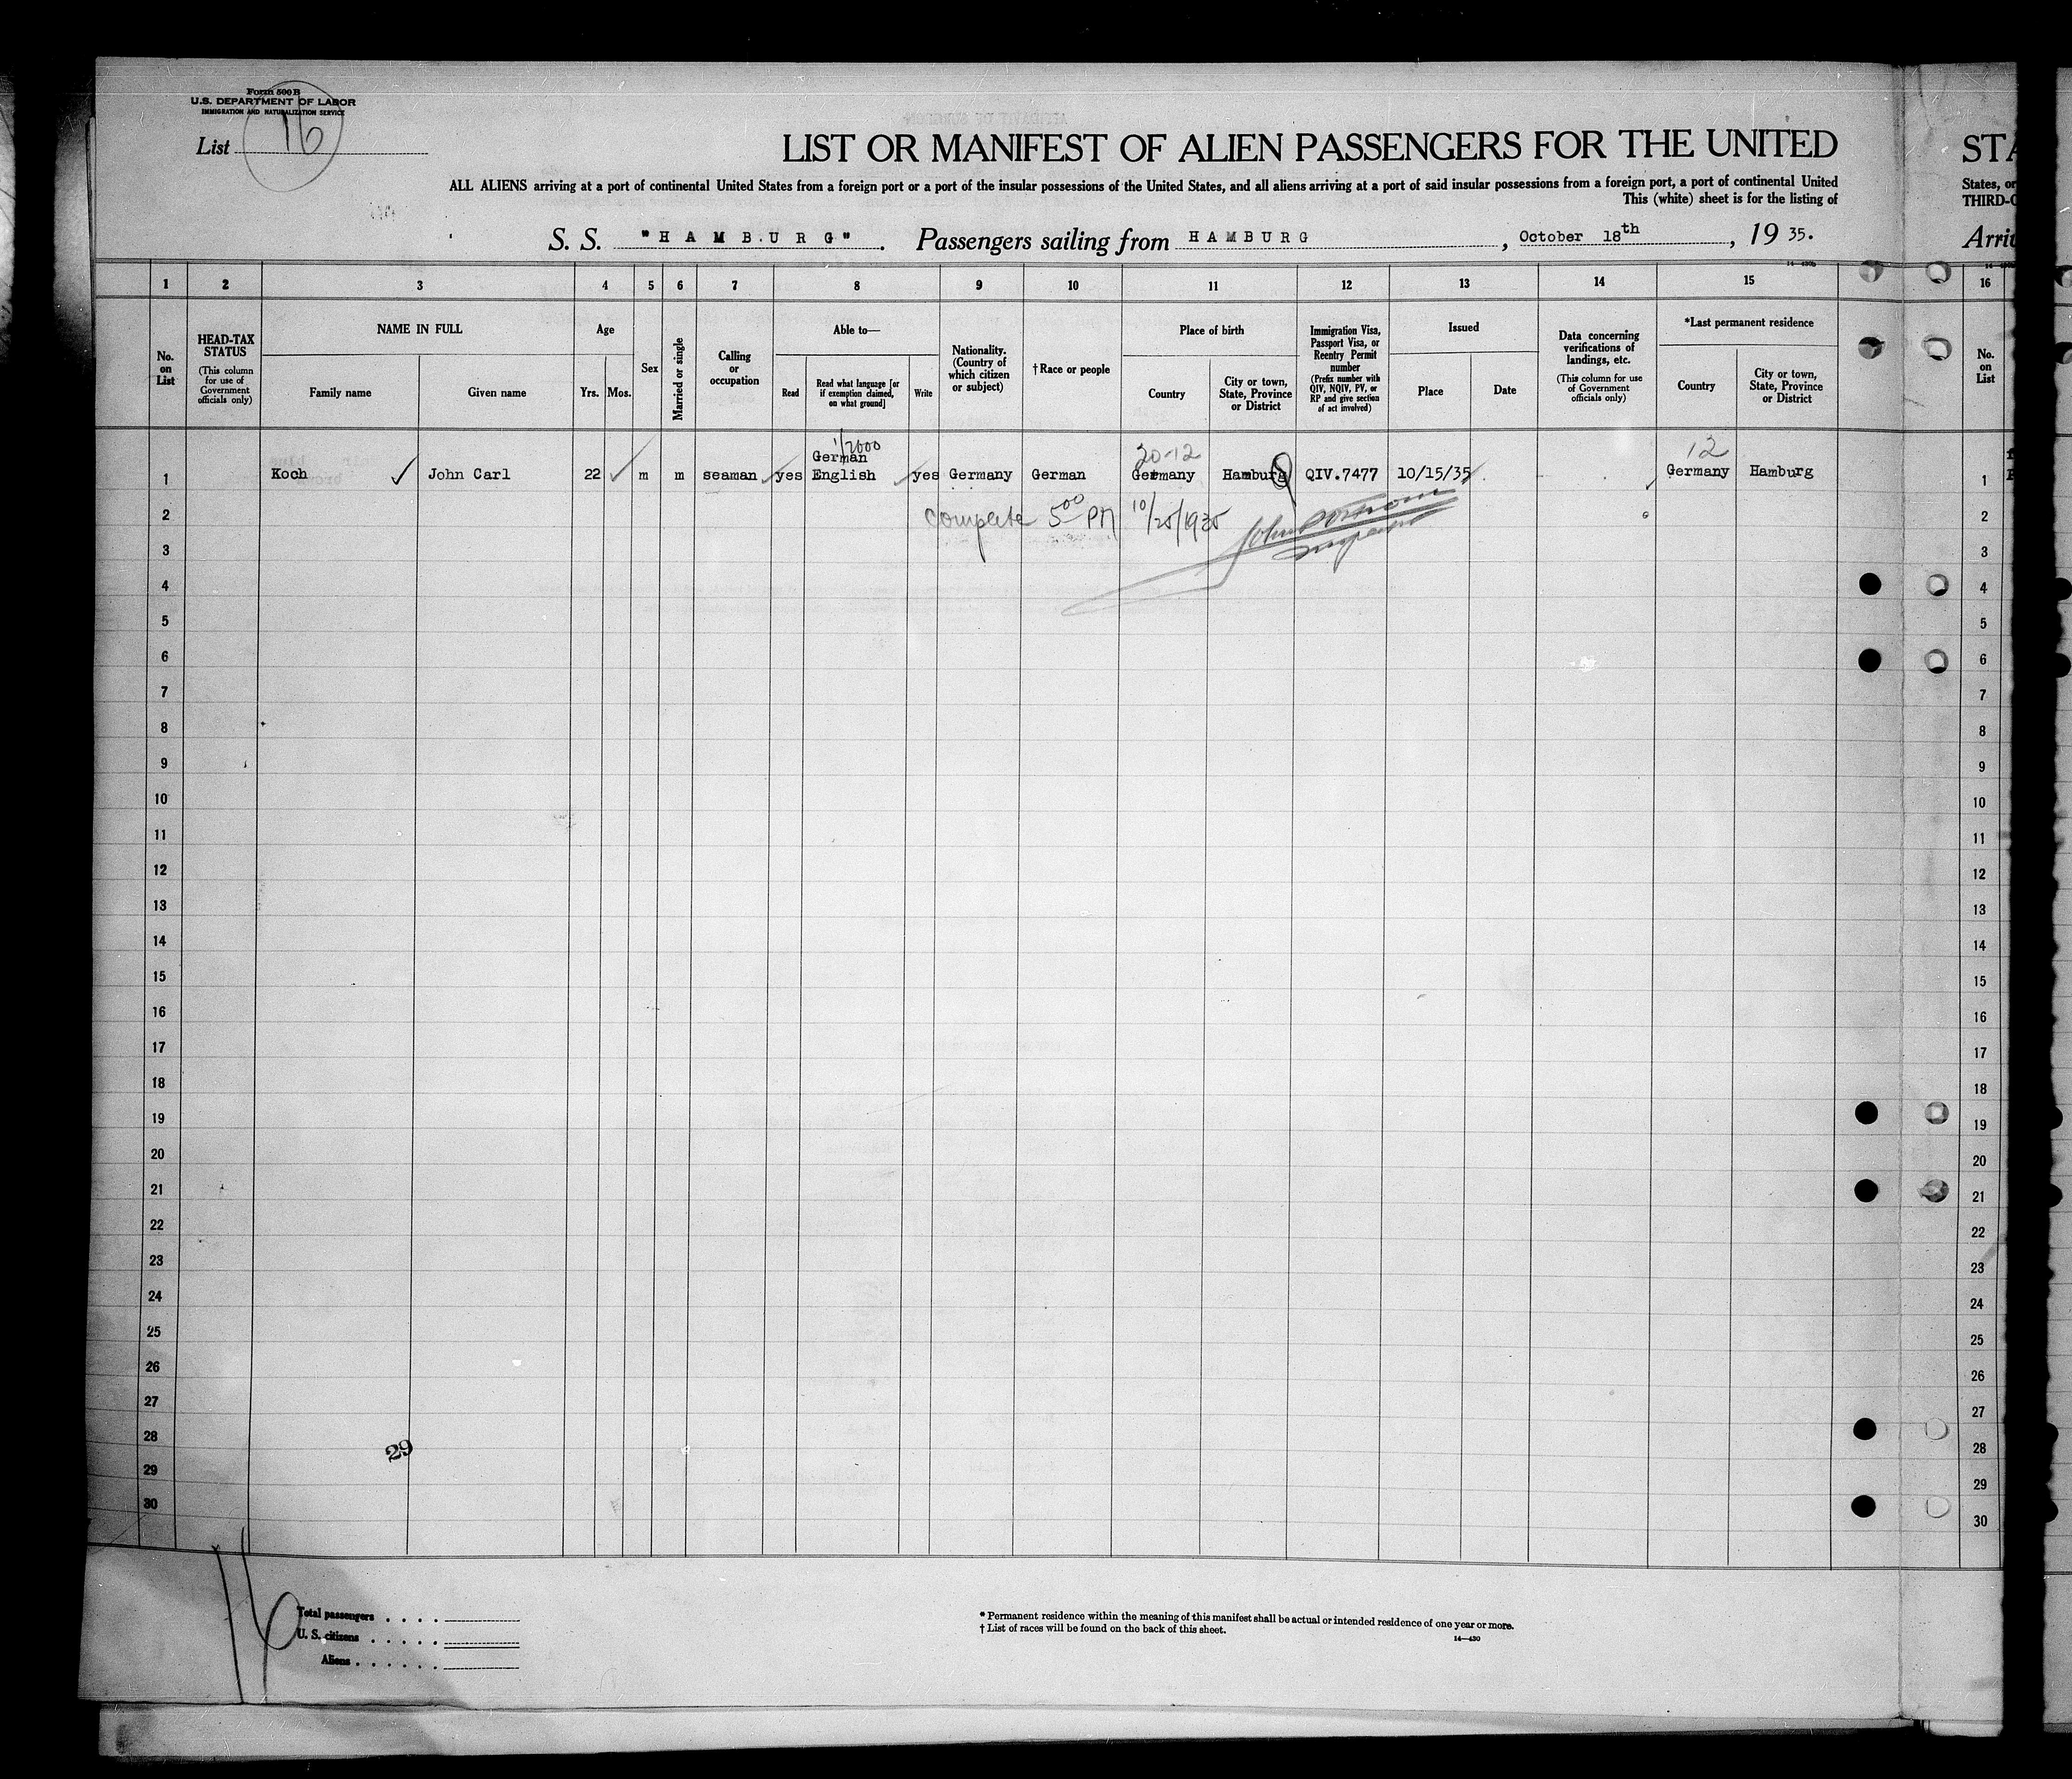 Form 500 B
U.S. DEPARTMENT OF LABOR
IMMIGRATION AND NATURALIZATION SERVICE
List 16
LIST OR MANIFEST OF ALIEN PASSENGERS FOR THE UNITED
ALL ALIENS arriving at a port of continental United States from a foreign port or a port of the insular possessions of the United States, and all aliens arriving at a port of said insular possessions from a foreign port, a port of continental United
This (white) sheet is for the listing of
S. S. "HAMBURG". Passengers sailing from HAMBURG, October 18th, 19 35.
STA
States, or
THIRD-C
Arriv
1 2 3 4 5 6 7 8 9 10 11 12 13 14 15 16
No. on List
HEAD-TAX STATUS
(This column for use of Government officials only)
NAME IN FULL
Family name
Given name
Age
Yrs.
Mos.
Sex
Married or single
Calling or occupation
Able to—
Read
Read what language [or if exemption claimed, on what ground]
Write
Nationality. (Country of which citizen or subject)
† Race or people
Place of birth
Country
City or town, State, Province or District
Immigration Visa, Passport Visa, or Reentry Permit number
(Prefix number with QIV, NQIV, PV, or RP and give section of act involved)
Issued
Place
Date
Data concerning verifications of landings, etc.
(This column for use of Government officials only)
*Last permanent residence
Country
City or town, State, Province or District
No. on List
1/2000
German
20-12
12
1 Koch John Carl 22 m m seaman yes English yes Germany German Germany Hamburg QIV.7477 10/15/35 Germany Hamburg 1
2 complete 5 00 PM 10/25/1935 2
3 3
4 4
5 5
6 6
7 7
8 8
9 9
10 10
11 11
12 12
13 13
14 14
15 15
16 16
17 17
18 18
19 19
20 20
21 21
22 22
23 23
24 24
25 25
26 26
27 27
28 29 28
29 29
30 30
16
Total passengers . . . .
U. S. citizens . . . . .
Aliens . . . . . .
* Permanent residence within the meaning of this manifest shall be actual or intended residence of one year or more.
† List of races will be found on the back of this sheet.
14—430